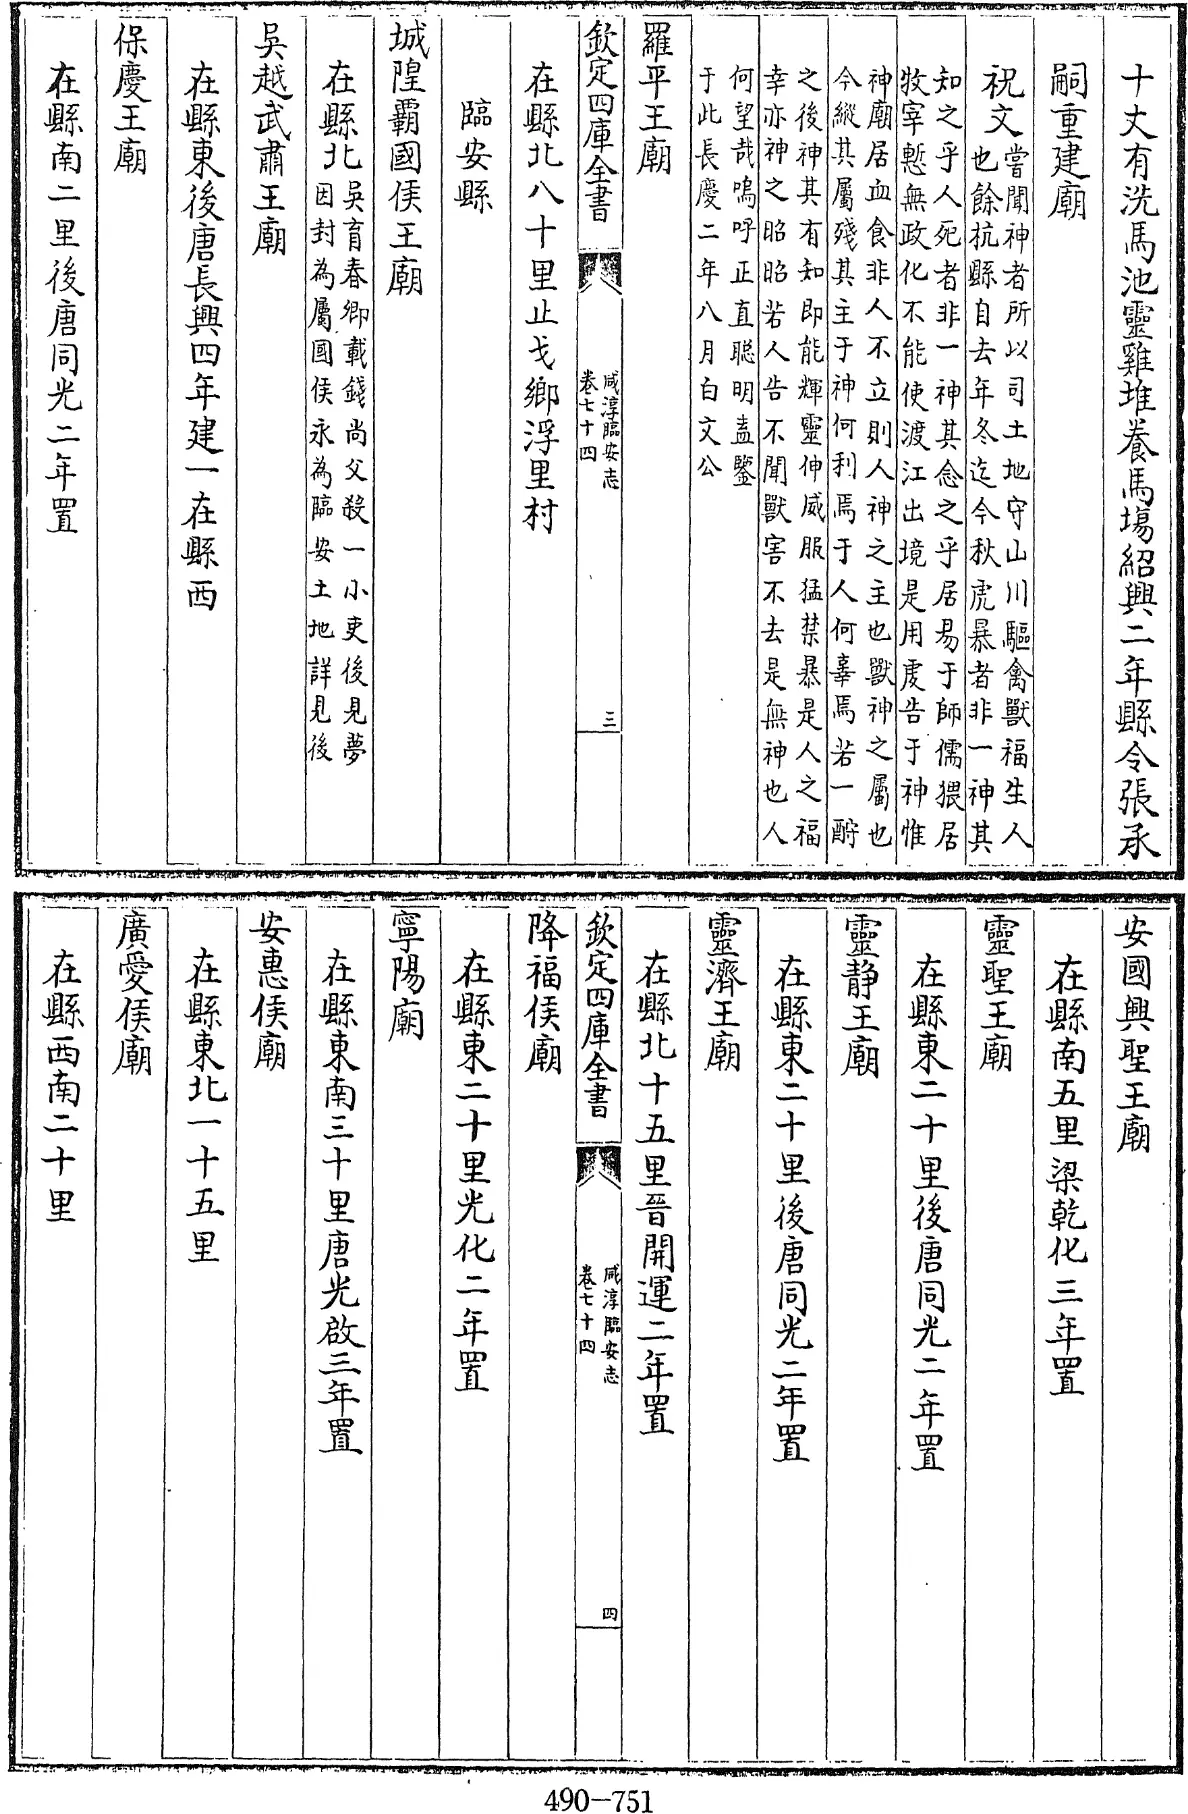 十丈有洗馬池靈雞堆養馬塲紹興二年縣令張承
嗣重建廟
祝文嘗聞神者所以司土地守山川驅禽獸福生人
也餘杭縣自去年冬迄今秋虎暴者非一神其
知之乎人死者非一神其念之乎居易于師儒猥居
牧宰慙無政化不能使渡江出境是用虔告于神惟
神廟居血食非人不立則人神之主也獸神之屬也
今縱其屬殘其主于神何利焉于人何辜焉若一酹
之後神其有知即能輝靈伸威服猛禁暴是人之福
幸亦神之昭昭若人告不聞獸害不去是無神也人
何望哉嗚呼正直聰明盍鑒
于此長慶二年八月白文公
羅平王廟
欽定四庫全書
咸淳臨安志
卷七十四
三
在縣北八十里止戈鄉浮里村
臨安縣
城隍霸國侯王廟
在縣北吳育春卿載錢尚父殺一小吏後見夢
因封為屬國侯永為臨安土地詳見後
吳越武肅王廟
在縣東後唐長興四年建一在縣西
保慶王廟
在縣南二里後唐同光二年置
安國興聖王廟
在縣南五里梁乾化三年置
靈聖王廟
在縣東二十里後唐同光二年置
靈静王廟
在縣東二十里後唐同光二年置
靈濟王廟
在縣北十五里晉開運二年置
欽定四庫全書
咸淳臨安志
卷七十四
四
降福侯廟
在縣東二十里光化二年置
寧陽廟
在縣東南三十里唐光啟三年置
安惠侯廟
在縣東北一十五里
廣愛侯廟
在縣西南二十里
490-751